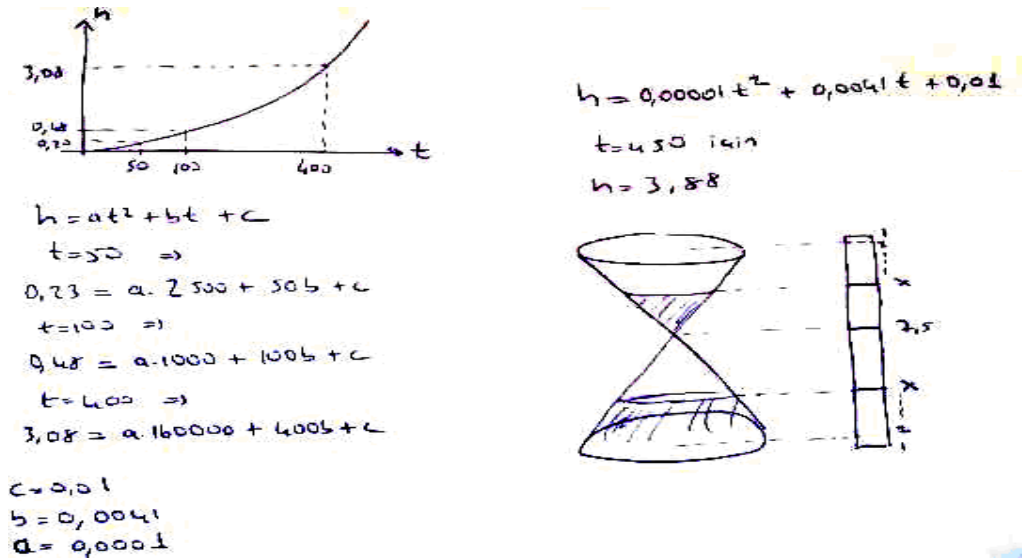 h
3,08
0,48
0,23
50 100 400 t
h = at² + bt + c
t=50 =>
0,23 = a. 2500 + 50b + c
t=100 =>
0,48 = a.1000 + 100b + c
t=400 =>
3,08 = a.160000 + 400b + c
c=0,01
b=0,0041
a=0,0001
h=0,00001t² + 0,0041t + 0,01
t=450 için
h=3,88
1
2
x
7,5
x
2
1